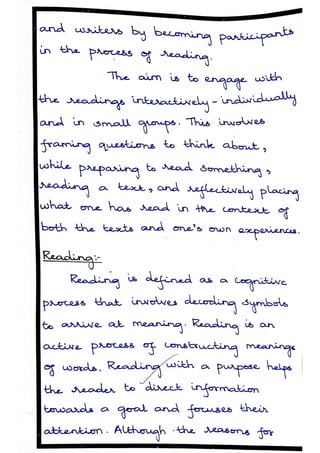 and writers by becoming participants
in the process of reading.
The aim is to engage with
the readings interactively - individually
and in small groups. This involves
framing questions to think about,
while preparing to read something,
reading a text, and reflectively placing
what one has read in the context of
both the texts and one's own experiences.
Reading:-
Reading is defined as a cognitive
process that involves decoding symbols
to arrive at meaning. Reading is an
active process of constructing meanings
of words. Reading with a purpose helps
the reader to direct information
towards a goal and focuses their
attention. Although the reasons for